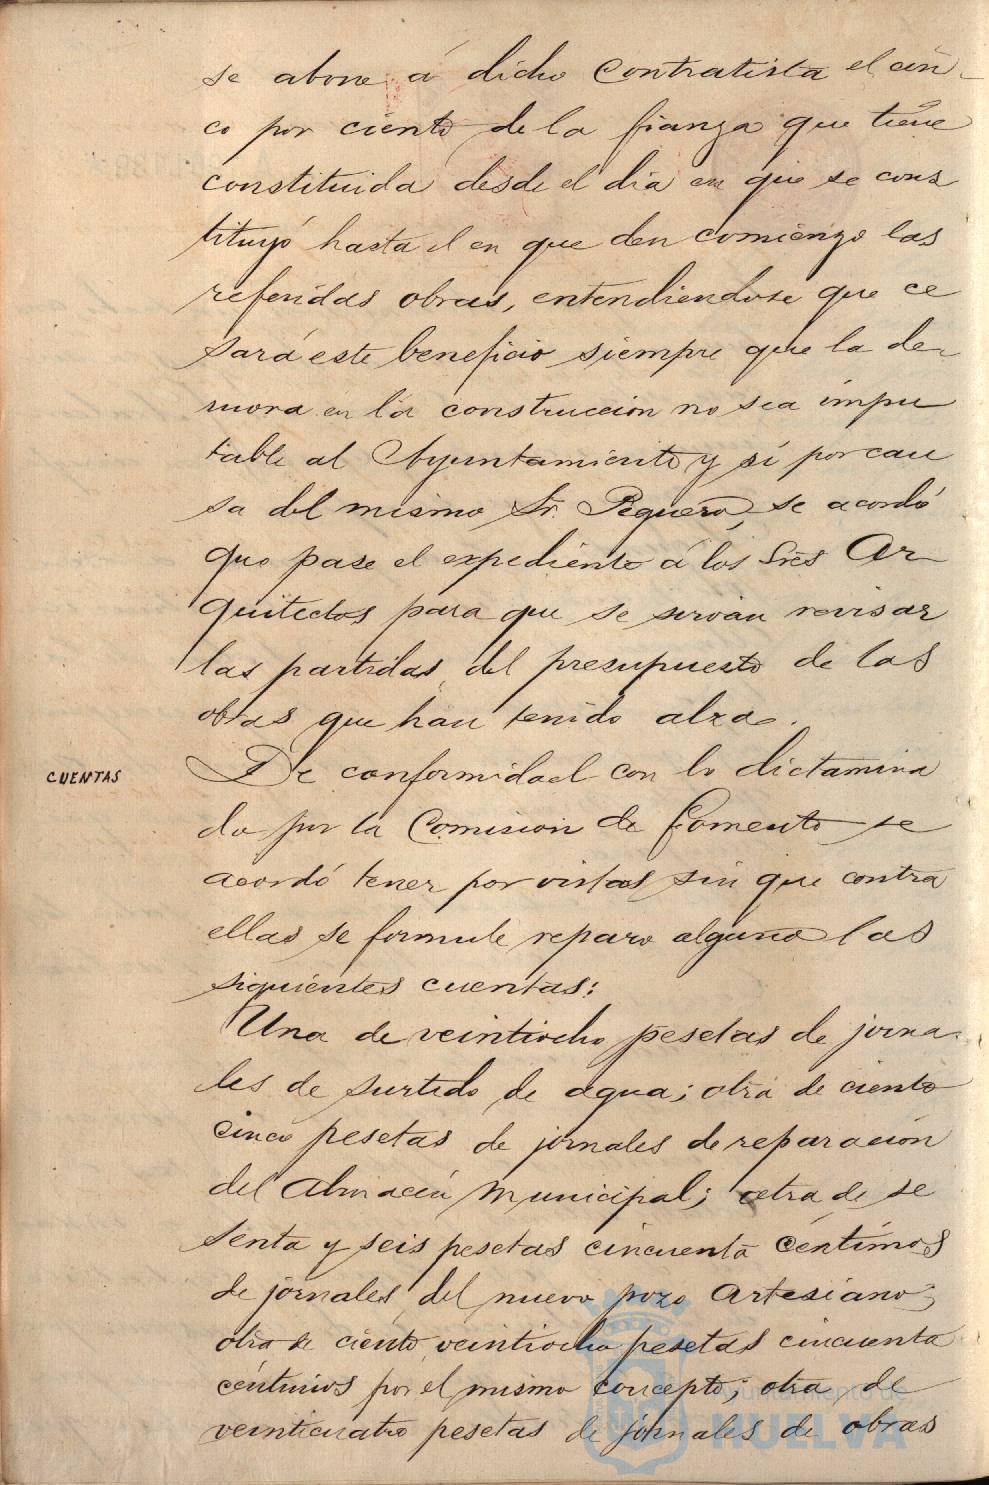 se abone á dicho Contratista el cin-
co por ciento de la fianza que tiene
constituida desde el dia en que se cons
tituyó hasta el en que den comienzo las
referidas obras, entendiendose que ce
sará este beneficio siempre que la de-
mora en la construccion no sea impu
table al Ayuntamiento y sí por cau
sa del mismo Sr. Peguero, se acordó
que pase el expediente á los Sres Ar-
quitectos para que se sirvan revisar
las partidas del presupuesto de las
obras que han tenido alza.
CUENTAS
De conformidad con lo dictamina
do por la Comision de Fomento se
acordó tener por vistas sin que contra
ellas se formule reparo alguno las
siguientes cuentas:
Una de veintiocho pesetas de jorna-
les de surtido de agua; otra de ciento
cinco pesetas de jornales de reparacion
del Almacén Municipal; otra de se
senta y seis pesetas cincuenta céntimos
de jornales del nuevo pozo Artesiano;
otra de ciento veintiocho pesetas cincuenta
céntimos por el mismo concepto; otra de
veinticuatro pesetas de jornales de obras
Ayuntamiento de
HUELVA